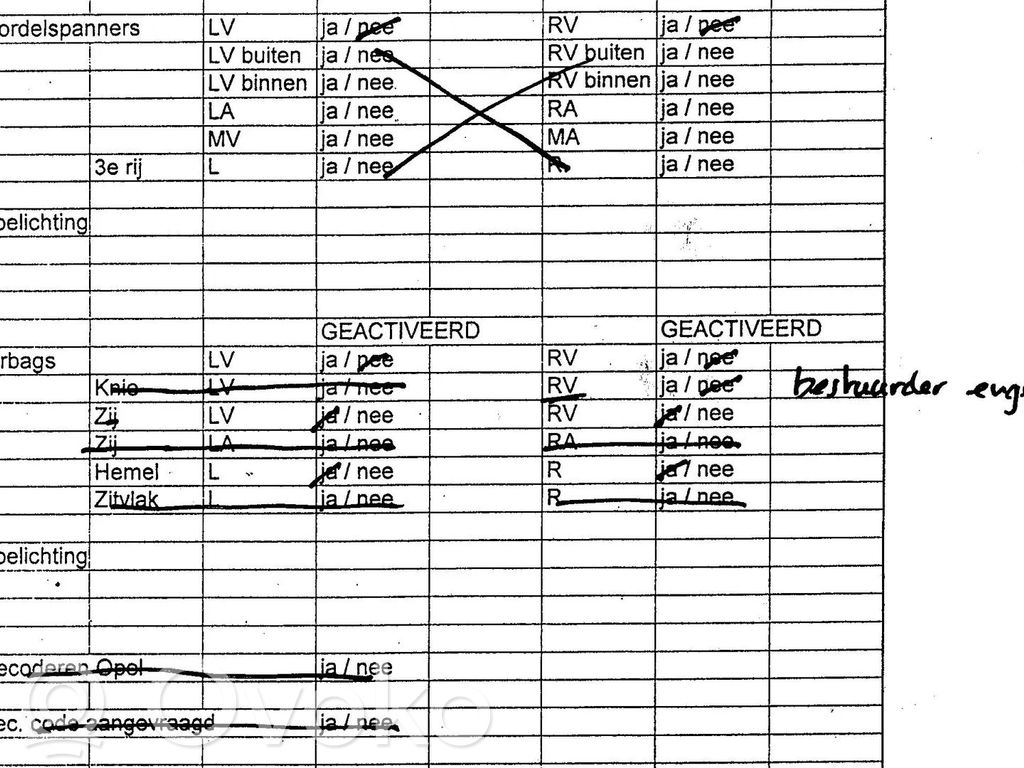 ordelspanners LV ja / nee RV ja / nee
LV buiten ja / nee RV buiten ja / nee
LV binnen ja / nee RV binnen ja / nee
LA ja / nee RA ja / nee
MV ja / nee MA ja / nee
3e rij L ja / nee R ja / nee
oelichting
GEACTIVEERD GEACTIVEERD
rbags LV ja / nee RV ja / nee
Knie LV ja / nee RV ja / nee bestuurder enge
Zij LV ja / nee RV ja / nee
Zij LA ja / nee RA ja / nee
Hemel L ja / nee R ja / nee
Zitvlak L ja / nee R ja / nee
oelichting
ecoderen Opel ja / nee
ec. code aangevraagd ja / nee
Ovoko